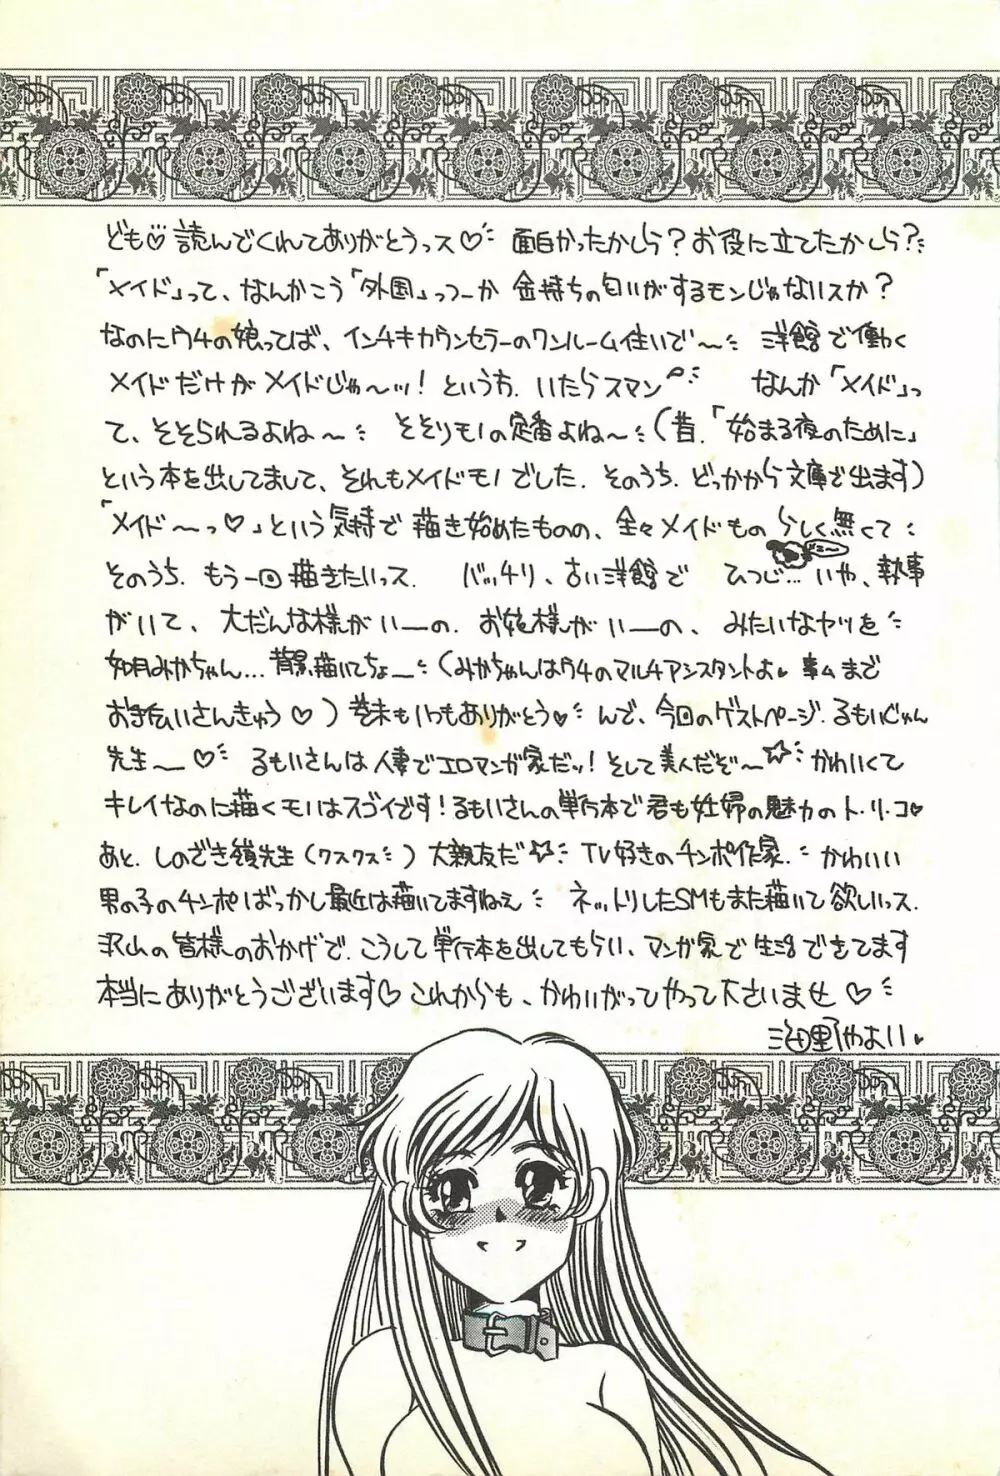 ども♡読んでくれてありがとうっス♡ 面白かったかしら?お役に立てたかしら?
「メイド」って、なんかこう「外国」っつーか 金持ちの匂いがするモンじゃないスか?
なのにウチの娘ってば、インチキカウンセラーのワンルーム住いで〜 洋館で働く
メイドだけがメイドじゃ〜ッ!というわ. いたらスマン なんか「メイド」っ
て、そそられるよね〜 そそりモノの定番よね〜(昔.「始まる夜のために」
という本を出してまして、それもメイドモノでした. そのうち. どっかから文庫で出ます)
「メイド〜っ♡」という気持で描き始めたものの、全々メイドものらしく無くて
そのうち. もう一回描きたいっス. バッチリ、古い洋館で ひつじ…いや、執事
がいて、大だんな様がいーの. お嬢様がいーの、みたいなヤツを
如月みかちゃん…背景描いてちょー(みかちゃんはウチのマルチアシスタントよ♥ 事ムまで
お手伝いさんきゅう♡)巻末もいつもありがとう♥ んで、今回のゲストページ. るもいじゅん
先生〜♡ るもいさんは人妻でエロマンガ家だッ!そして美人だぞ〜☆ かわいくて
キレイなのに描くモノはスゴイです!るもいさんの単行本で君も妊婦の魅力のト・リ・コ♥
あと. しのざき嶺先生(クスクス)大親友だ☆ TV好きのチンポ作家. かわいい
男の子のチンポばっかし最近は描いてますねえ ネットリしたSMもまた描いて欲しいっス.
沢山の皆様のおかげで. こうして単行本を出してもらい、マンガ家で生活できてます
本当にありがとうございます♡これからも、かわいがってやって下さいませ♡
海野やよい♥